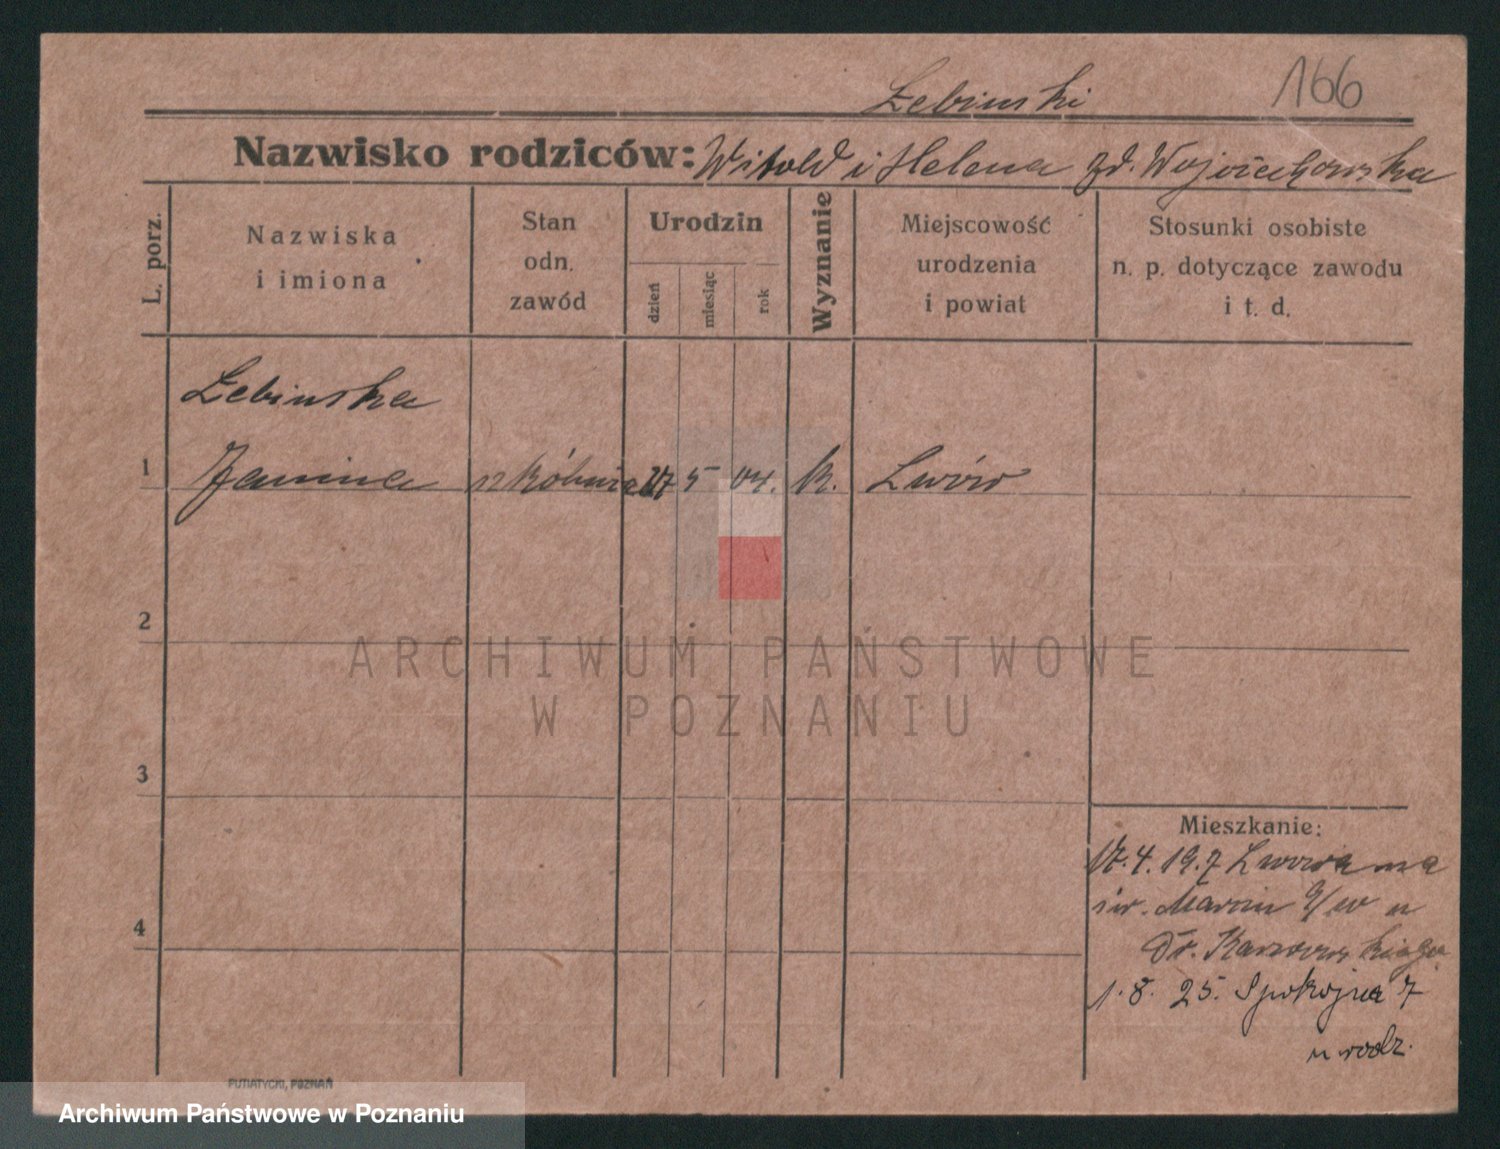 166
Łebinski
Nazwisko rodziców: Witold i Helena zd. Wojciechowska
L. porz.
Nazwiska
i imiona
Stan
odn.
zawód
Urodzin
dzień
miesiąc
rok
Wyznanie
Miejscowość
urodzenia
i powiat
Stosunki osobiste
n. p. dotyczące zawodu
i t. d.
Łebinska
1 Janina 17 5 04. k. Lwów
2
3
4
ARCHIWUM PAŃSTWOWE
W POZNANIU
Mieszkanie:
17.4.19.7
św. Marcin u
Dr.
1.8.25. Spokojna 7
u rodz.
PUTIATYCKI, POZNAŃ
Archiwum Państwowe w Poznaniu